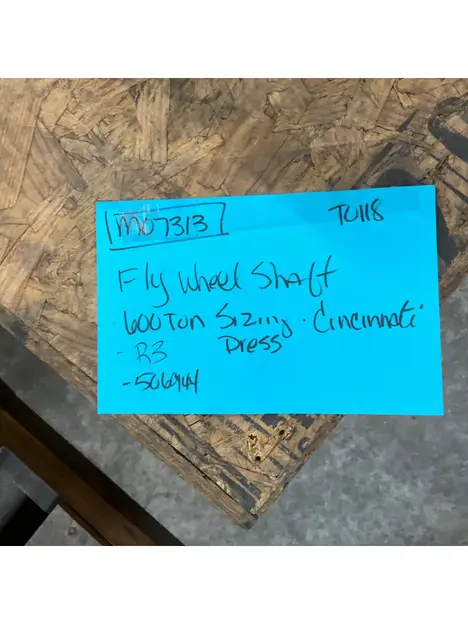 M07313
T0118
Fly Wheel Shaft
600 Ton Sizing · Cincinnati
Press
- R3
- 506944